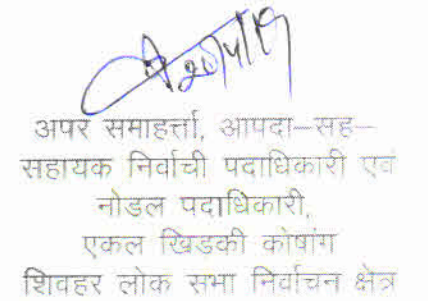 अपर समाहर्त्ता, आपदा–सह–
सहायक निर्वाची पदाधिकारी एवं
नोडल पदाधिकारी,
एकल खिड़की कोषांग
शिवहर लोक सभा निर्वाचन क्षेत्र